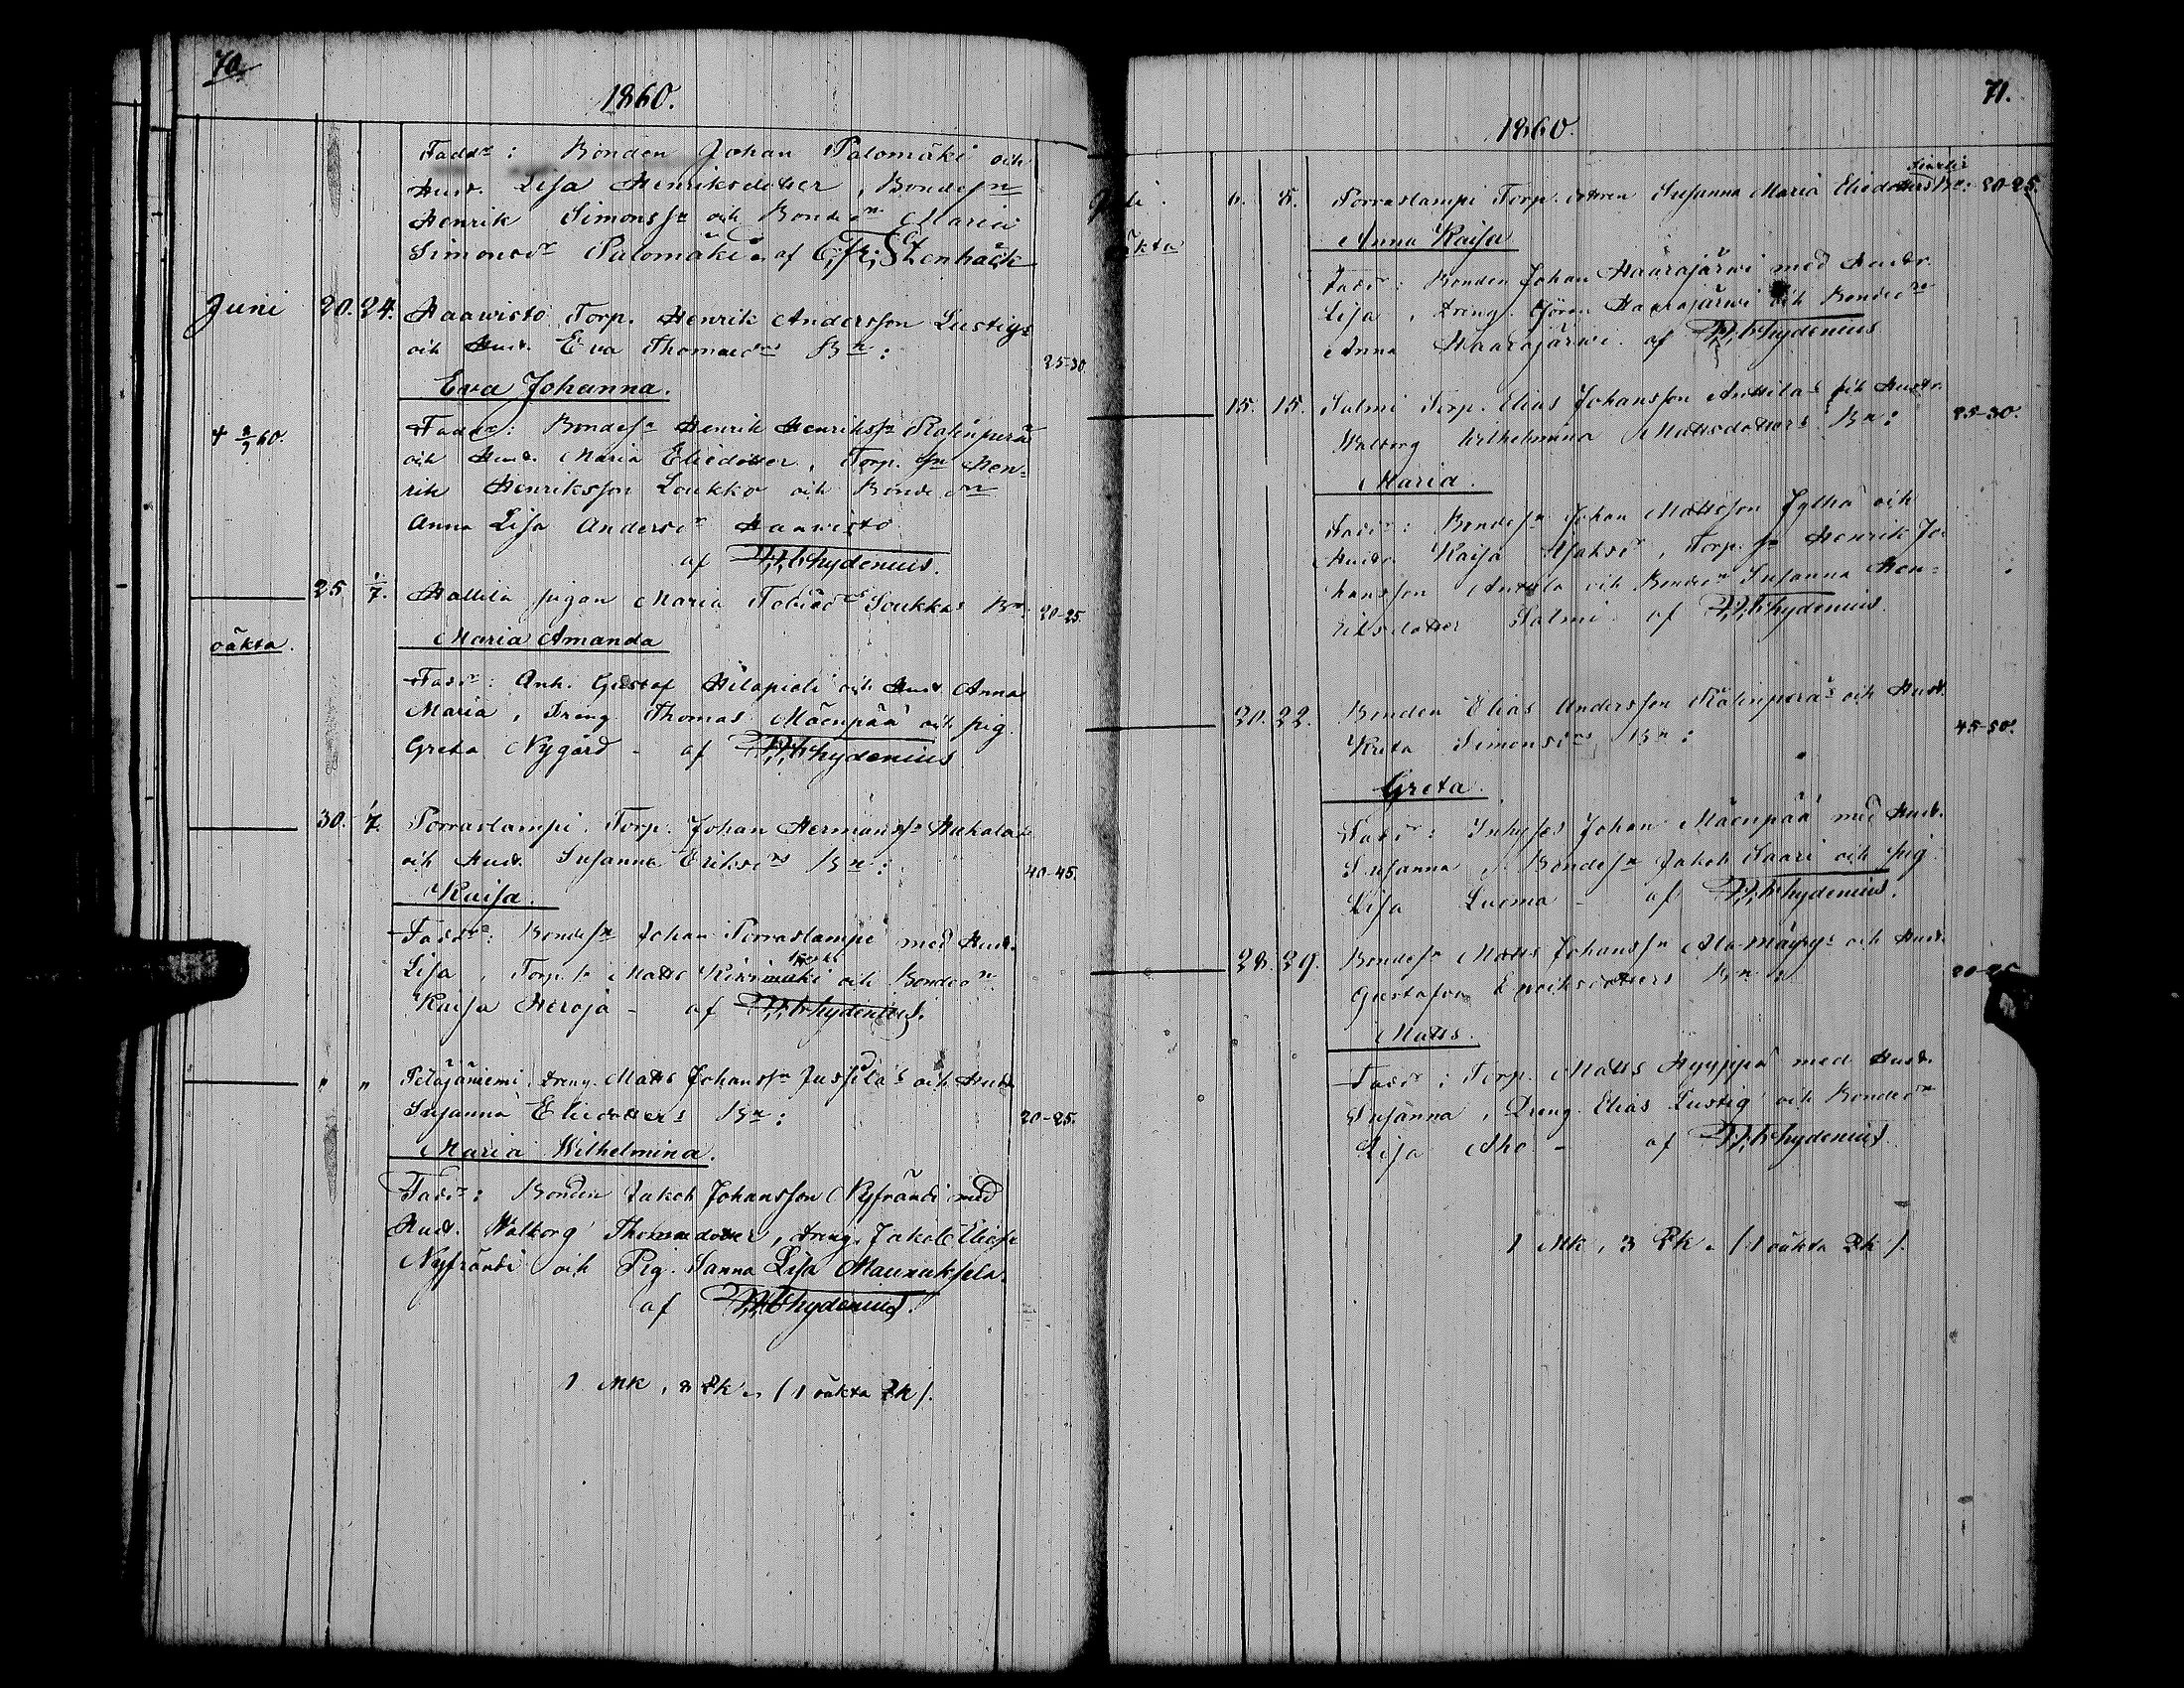 70.
1860.
Fadd:r : Bonden Johan Palomäki och
Hust. Lisa Henriksdotter, Bondesn
Henrik Simonss:n och Bonded:r Maria
Simonsd:r Palomäki. af C. Fr. Stenbäck
Juni 20. 24. Haawisto Torp. Henrik Andersson Lustigs
och Hust. Eva Thomasd:rs B:n : 25-30
Eva Johanna.
Fadd:r : Bondes:n Henrik Henrikss:n
och Hust. Maria Eliedotter, Torp. s:n Hen-
rik Henriksson Loukko och Bonded:r
Anna Lisa Andersd:r Haawisto
af Chydenius.
25 1/7. Hallila pigan Maria B:n: 20-25.
oäkta.
Maria Amanda
Fadd:r : Gustaf och Hust. Anna
Maria, Dreng Thomas Mäenpää och pig.
Greta Nygård - af Chydenius
30. 1/7. Porraslampi Torp. Johan Hermanss:n
och Hust. Susanna Eriksd:rs B:n : 40-45.
Kaisa.
Fadd:r : Bondes:n Johan Porraslampi med Hust.
Lisa, Torp. s:n Matts och Bonded:r
Kaisa Heroja - af Chydenius.
" " Petäjäniemi dreng. Matts Johanss:n Jussila's och Hust.
Susanna Eliedotters B:n : 20-25.
Maria Wilhelmina.
Fadd:r : Bonden Jakob Johansson Nyfrändi med
Hust. Walborg Thomasdotter, dreng. Jakob Elies:n
Nyfrändi och Pig. Sanna Lisa
af Chydenius.
1 Mk, 3 Qk. (1 oäkta Qk).
71.
1860.
6. 8. Porraslampi Torp. dottren Susanna Maria Eliedotters B:n: 20-25.
Anna Kaisa
Fadd:r : Bonden Johan Haarajärwi med Hustr.
Lisa, Dreng. Haarajärwi och Bonded:r
Anna Haarajärwi. af Chydenius
15. 15. Salmi Torp. Elias Johansson Anttilas och Hustr.
Walborg Wilhelmina Mattsdotters B:n : 25-30.
Maria.
Fadd:r : Bondes:n Johan Mattsson Jylhä och
Hustr. Kaisa , Torp. s:n Henrik Jo-
hansson Anttila och Bonded:r Susanna Hen-
riksdotter Salmi. af Chydenius.
20. 22. Bonden Elias Andersson och Hust.
Greta Simonsd:rs B:n : 45-50.
Greta.
Fadd:r : Inhyses Johan Mäenpää med Hust.
Susanna, Bondes:n Jakob Saari och pig.
Lisa Luoma - af Chydenius.
28. 29. Bondes:n Matts Johanss:n och Hust.
Gustafva Eriksdotters B:n : 20-25
Matts.
Fadd:r : Torp. Matts Hyyppä med Hust.
Susanna, Dreng. Elias Lustig och Bonded:r
Lisa Aho - af Chydenius.
1 Mk, 3 Qk. (1 oäkta Qk).